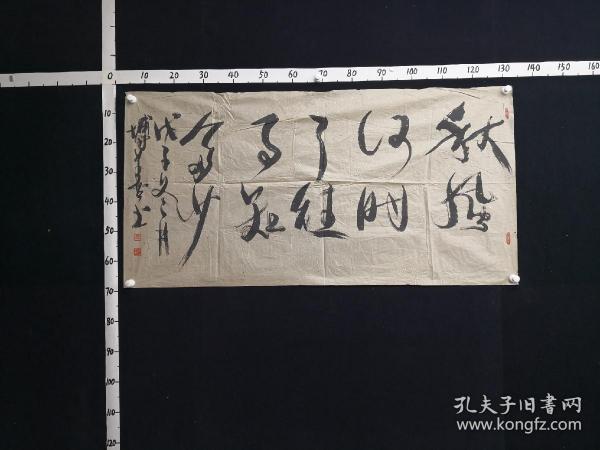 10 20 30 40 50 60 70 80 90 100 110 120 130 140 150 160
10
20
30
40
50
60
70
80
90
100
110
120
秋
何时
了往
事知
多少
戊子
书
孔夫子旧书网
www.kongfz.com